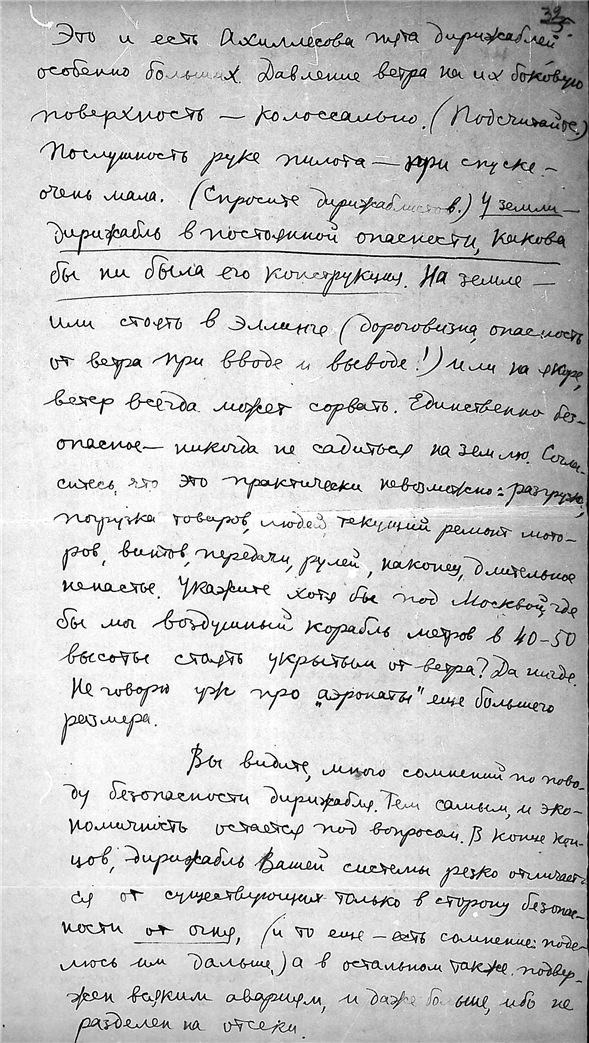 39
Это и есть Ахиллесова пята дирижаблей
особенно больших. Давление ветра на их боковую
поверхность — колоссально. (Подсчитайте.)
Послушность руке пилота — при спуске —
очень мала. (Спросите дирижаблистов.) У земли —
дирижабль в постоянной опасности, какова
бы ни была его конструкция. На земле —
или стоять в эллинге (дороговизна, опасность
от ветра при вводе и выводе!) или на якоре,
ветер всегда может сорвать. Единственно без-
опасное — никогда не садиться на землю. Согла-
ситесь, что это практически невозможно: разгрузка,
погрузка товаров, людей, текущий ремонт мото-
ров, винтов, передачи, рулей, наконец, длительное
ненастье. Укажите хотя бы под Москвой, где
бы мог воздушный корабль метров в 40-50
высоты стоять укрытым от ветра? Да нигде.
Не говорю уж про „аэронаты" еще большего
размера.
Вы видите, много сомнений по пово-
ду безопасности дирижабля. Тем самым, и эко-
номичность остается под вопросом. В конце кон-
цов, дирижабль Вашей системы резко отличает-
ся от существующих только в сторону безопас-
ности от огня, (и то еще — есть сомнение: поде-
люсь им дальше,) а в остальном также подвер-
жен всяким авариям, и даже больше, ибо не
разделен на отсеки.